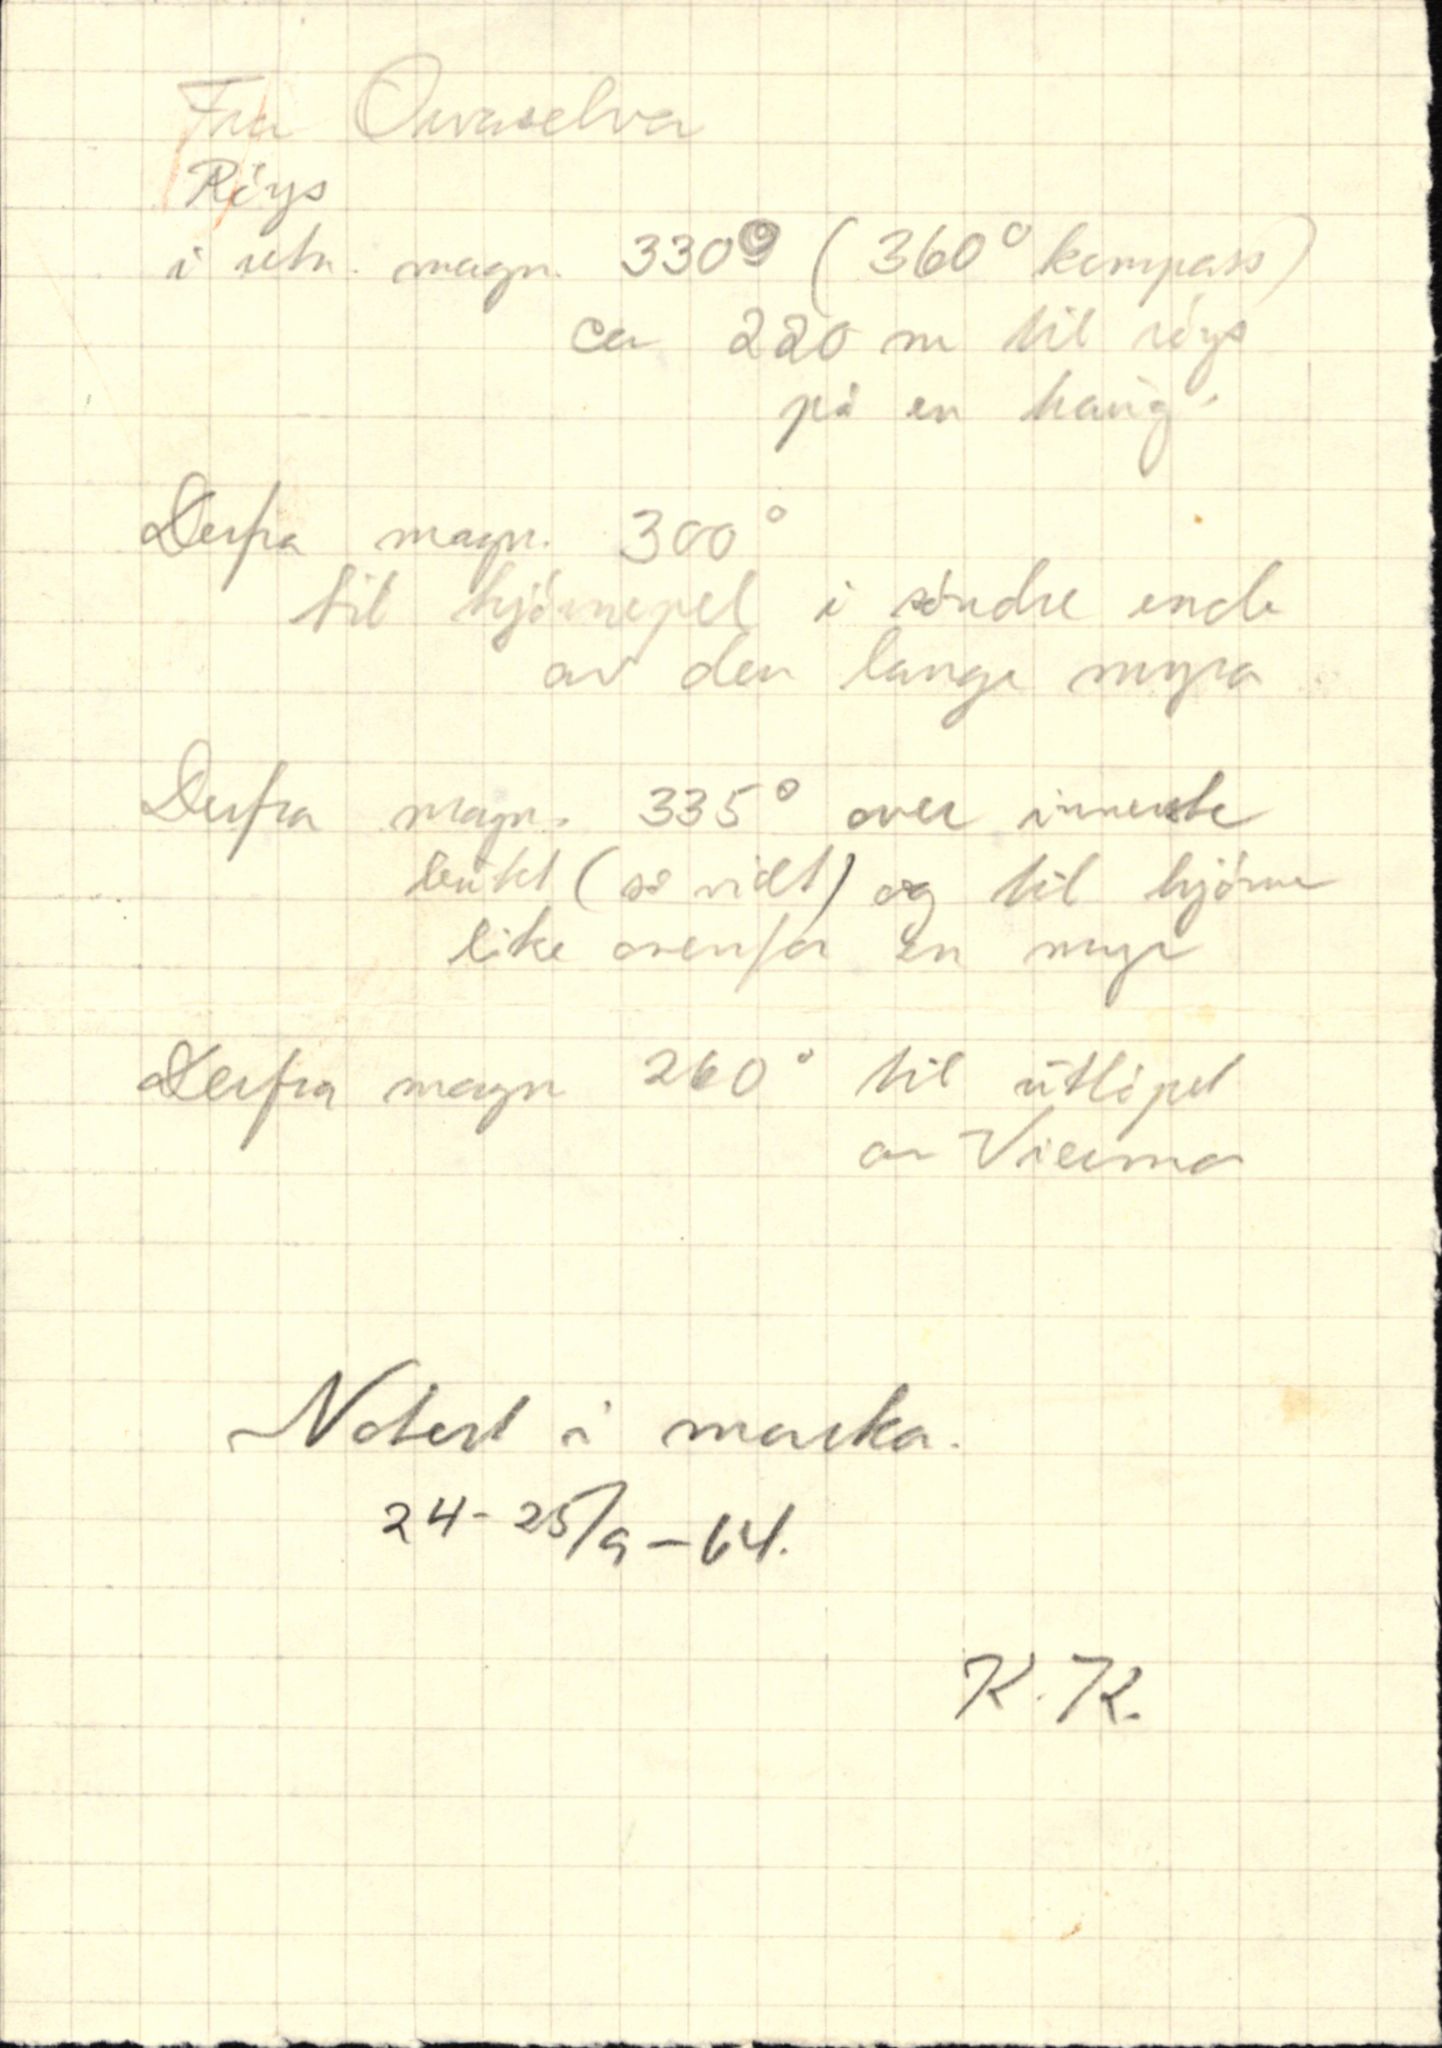 Fra Orvaselva
Röys
i retn. magn. 330° (360° kompass)
ca 220 m til röys
på en haug.
Derfra magn. 300°
til hjörnepel i söndre ende
av den lange myra
Derfra magn. 335° over innerste
bukt (så vidt) og til hjörne
like ovenfor en myr
Derfra magn 260° til utlöpet
av Vierma
Notert i marka.
24-25/9-64.
K. K.